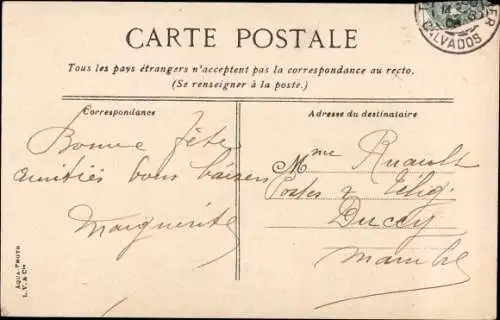 CARTE POSTALE
CALVADOS
Tous les pays étrangers n'acceptent pas la correspondance au recto.
(Se renseigner à la poste.)
Correspondance
Adresse du destinataire
Bonne fête
amitiés bons baisers
Marguerite
Mme Ruault
Postes & Télég.
Ducey
Manche
AQUA-PHOTO
L. V. & Cie